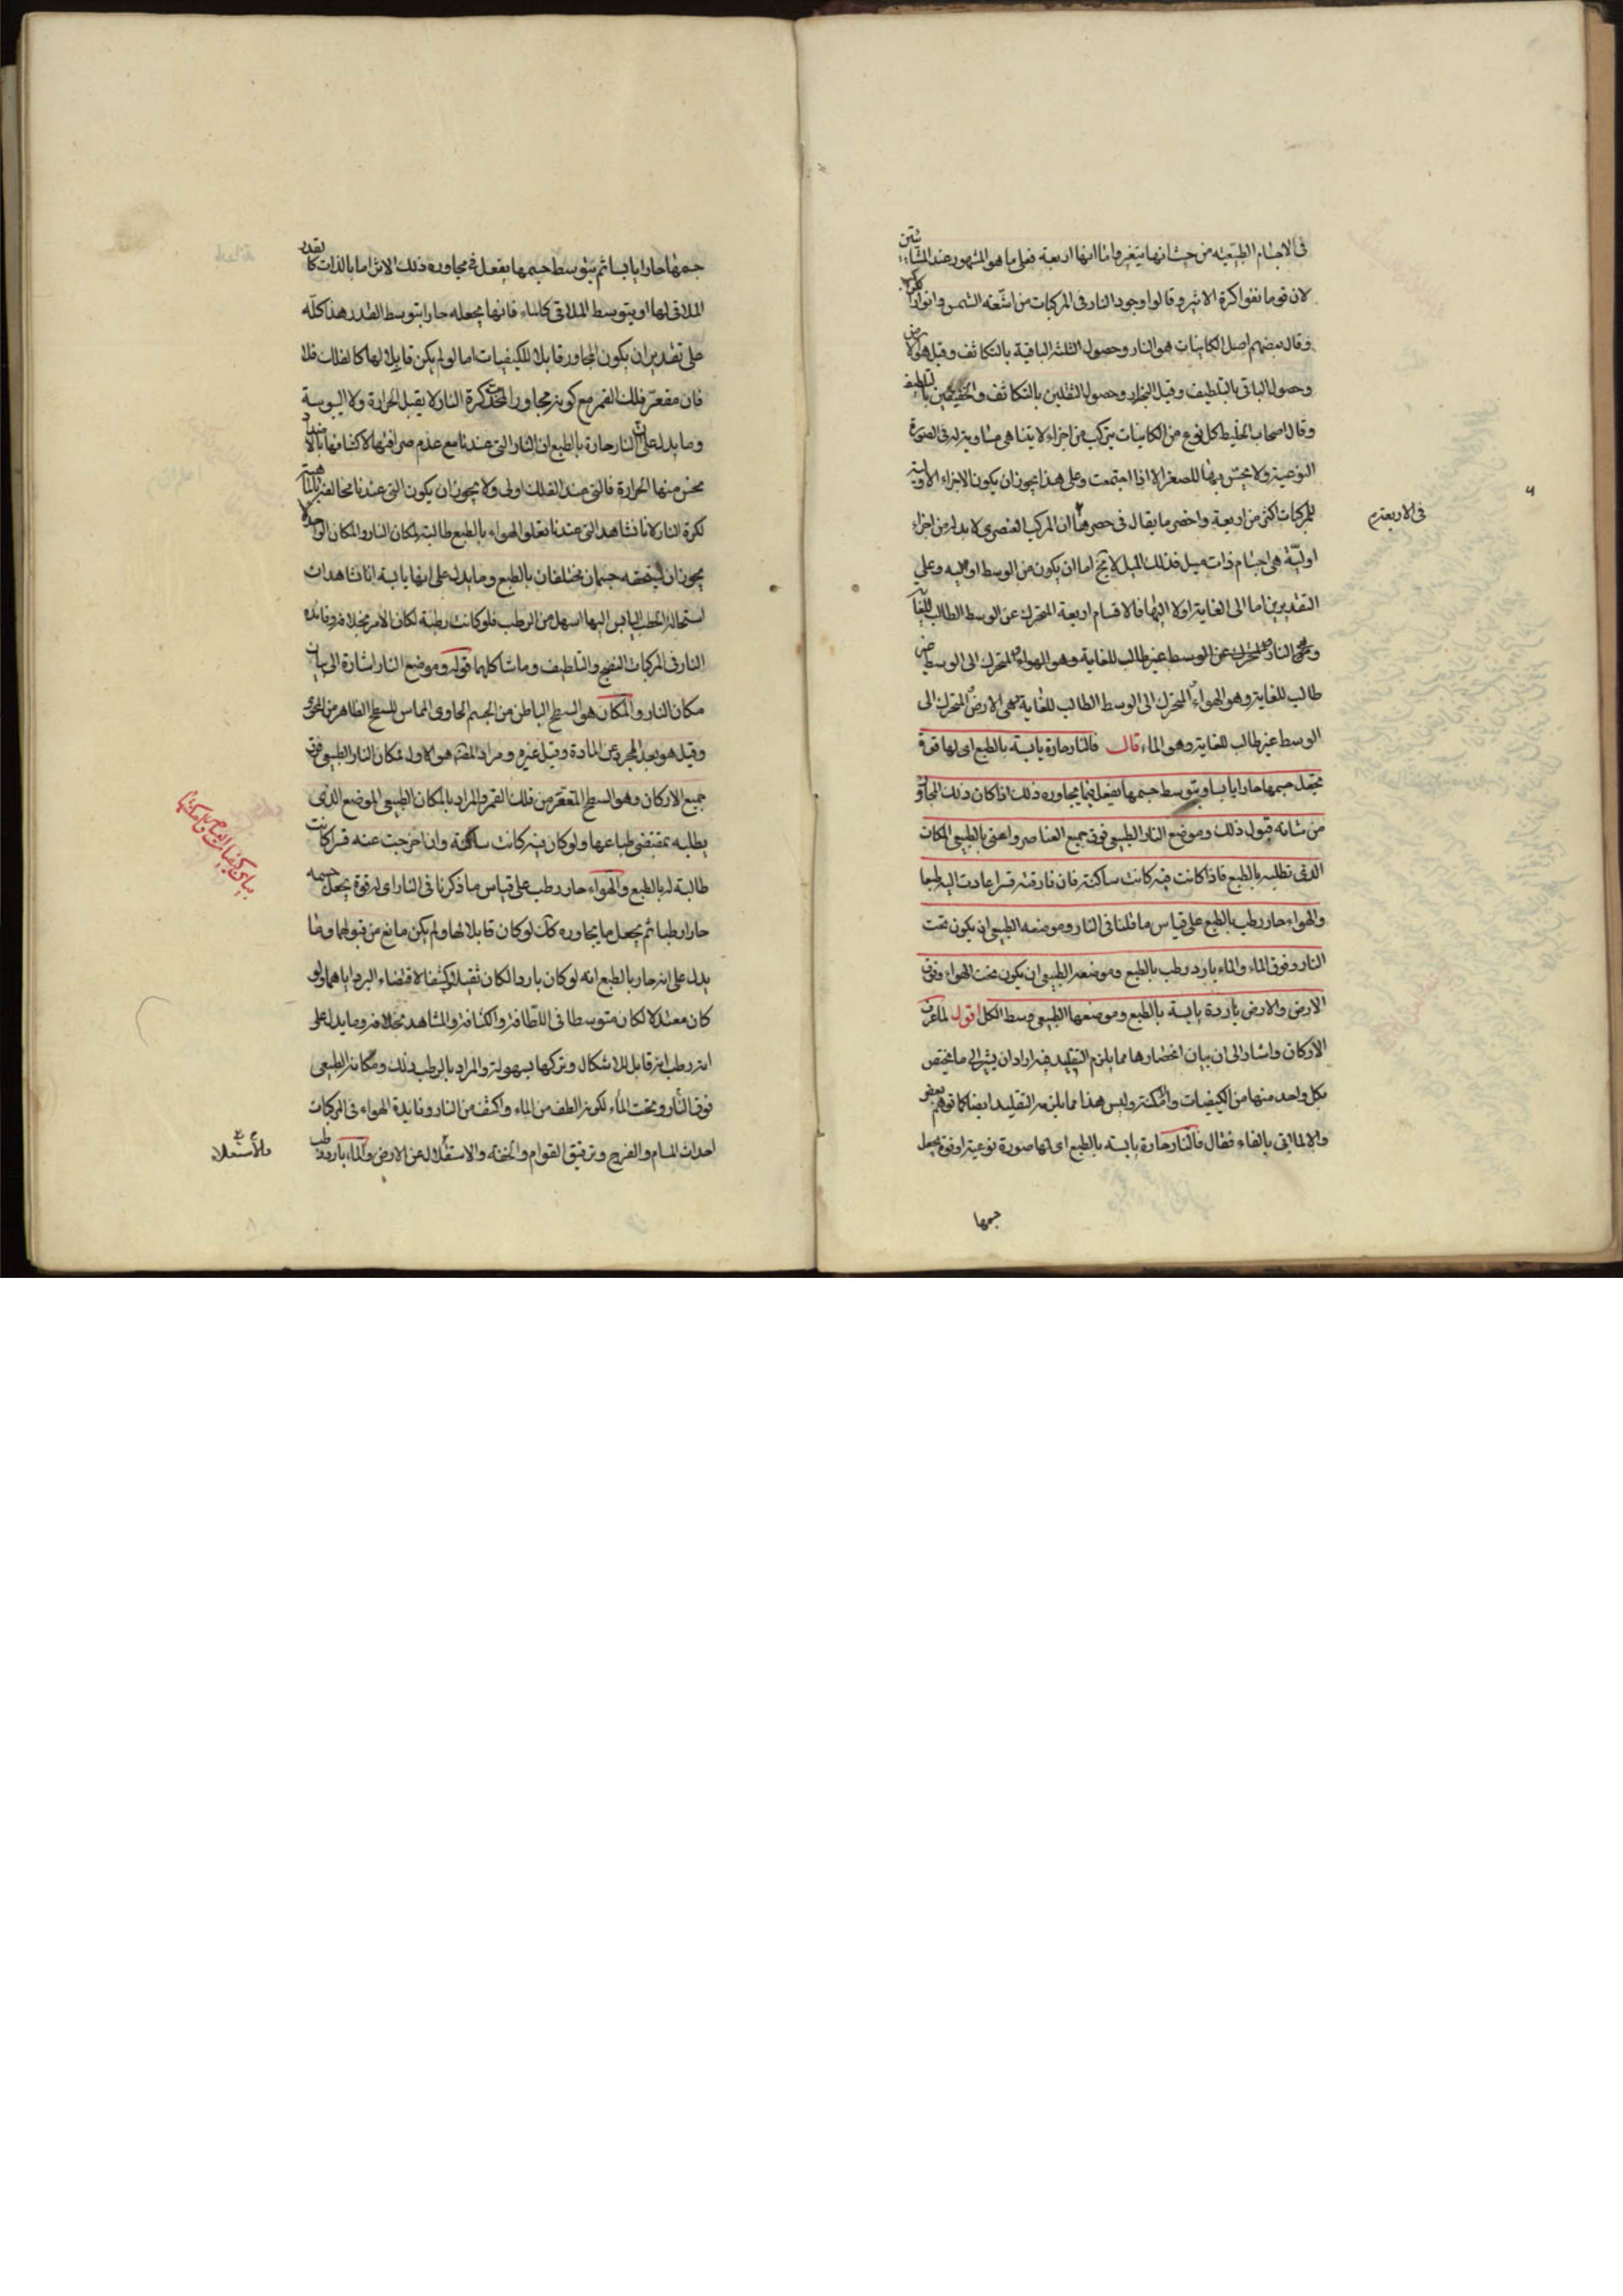 فى الاجسام الطبيعية من حيث انها يتغير واما انها اربعة فعلى ما هو المشهور عند المشائين
لان قوما نفوا كرة الاثير وقالوا وجود النار فى المركبات من اشعة الشمس وانوار الكواكب
وقال بعضهم اصل الكاينات هو النار وحصول الثلثة الباقية بالتكاثف وقيل هو الارض
وحصول الباقى بالتلطيف وقيل البخار وحصول الثقيلين بالتكاثف والخفيفين بالتلطيف
وقال اصحاب الخليط كل نوع من الكاينات يتركب من اجزاء لا يتناهى مساوية له فى الصورة
النوعية ولا يحس بها للصغر الا اذا اجتمعت وعلى هذا يجوز ان يكون الاجزاء الاولية
للمركبات اكثر من اربعة واخصر ما يقال فى حصرها ان المركب العنصرى لا بد له من اجزاء
فى الاربعة
اولية هى اجسام ذات ميل فذلك الميل لا يخ اما ان يكون من الوسط او اليه وعلى
التقديرين اما الى الغاية او لا اليها فالاقسام اربعة المتحرك عن الوسط الطالب للغاية
وهى النار والمتحرك عن الوسط غير طالب للغاية وهو الهواء والمتحرك الى الوسط غير
طالب للغاية وهو الهواء المتحرك الى الوسط الطالب للغاية وهى الارض المتحرك الى
الوسط غير طالب للغاية وهو الماء قال فالنار حارة يابسة بالطبع اى لها قوة
تجعل جسمها حارا يابسا وبتوسط جسمها تفعل فيما يجاوره ذلك اذا كان ذلك المجاور
من شانه قبول ذلك وموضع النار الطبيعى فوق جميع العناصر واعنى بالطبيعى المكان
الذى تطلبه بالطبع فاذا كانت فيه كانت ساكنة فان فارقته قسرا عادت اليه طبعا
والهواء حار رطب بالطبع على قياس ما قلنا فى النار وموضعه الطبيعى ان يكون تحت
النار وفوق الماء والماء بارد رطب بالطبع وموضعه الطبيعى ان يكون تحت الهواء وفوق
الارض والارض باردة يابسة بالطبع وموضعها الطبيعى وسط الكل اقول لما عرف
الاركان واشار الى ان بيان انحصارها مما يلزم التقليد فيه اراد ان يشير الى ما يختص
بكل واحد منها من الكيفيات والامكنة وليس هذا مما يلزم التقليد ايضا كما توهم بعض
والا لما اتى بالفاء فقال فالنار حارة يابسة بالطبع اى لها صورة نوعية او قوة يجعل
جسمها
جسمها حارا يابسا ثم بتوسط جسمها يفعل فى مجاوره ذلك الاثر اما بالذات كالقدر
الملاقى لها او بتوسط الملاقى كالماء فانها يجعله حارا بتوسط القدر هذا كله
على تقدير ان يكون المجاور قابلا للكيفيات اما لو لم يكن قابلا لها كالفلك فلا
فان مقعر فلك القمر مع كونه مجاور المحدب كرة النار لا يقبل الحرارة ولا اليبوسة
ومما يدل على ان النار حارة بالطبع ان النار التى عندنا مع عدم صرافتها لاكتنافها بالاضداد
يحس منها الحرارة فالتى عند الفلك اولى ولا يجوز ان يكون التى عندنا مخالفة بالماهية
لكرة النار لانا نشاهد التى عندنا تعلو الهواء بالطبع طالبة لمكان النار والمكان الواحد لا
يجوز ان يستحقه جسمان مختلفان بالطبع ومما يدل على انها يابسة انا نشاهد ان
استحالة الحطب اليابس اليها اسهل من الرطب فلو كانت رطبة لكان الامر بخلافه وفائدة
النار فى المركبات النضج والتلطيف وما شاكلهما قوله وموضع النار اشارة الى بيان
مكان النار والمكان هو السطح الباطن من الجسم الحاوى المماس للسطح الظاهر من المحوى
وقيل هو بعد المجرد عن المادة وقيل غيره ومراد المصنف هو الاول فمكان النار الطبيعى فوق
جميع الاركان وهو السطح المتقعر من فلك القمر والمراد بالمكان الطبيعى الموضع الذى
يطلبه بمقتضى طباعها ولو كان فيه كانت ساكنة وان اخرجت عنه قسرا كانت
بيان كيفيات العناصر وامكنتها
طالبة له بالطبع والهواء حار رطب على قياس ما ذكرنا فى النار اى له قوة يجعل جسمه
حارا رطبا ثم يجعل ما يجاوره كك لو كان قابلا لها ولم يكن مانع من قبولها ومما
يدل على انه حار بالطبع انه لو كان باردا لكان ثقيلا وكثيفا لاقتضاء البرد اياهما ولو
كان معتدلا لكان متوسطا فى اللطافة والكثافة والمشاهد بخلافه ومما يدل على
انه رطب انه قابل للاشكال وتركها بسهولة والمراد بالرطب ذلك ومكانه الطبيعى
فوق النار وتحت الماء لكونه الطف من الماء واكثف من النار وفايدة الهواء فى المركبات
احداث المسام والفرج وترقيق القوام والخفة والاستقلال عن الارض والماء بارد رطب
والاستعلاء